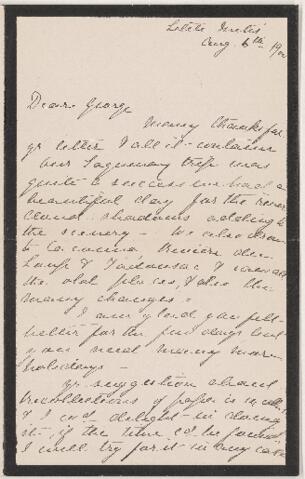 Little Metis
Aug. 6th 19
Dear George
Many thanks for
yr letter & all it contains
Our Saguenay trip was
quite a success we had a
beautiful day for the river
cloud shadows adding to
the scenery - We
to Cacouna Riviere du
Loup & Tadousac & saw all
the old places, & also the
many changes -
I am glad you felt
better for the few days but
you need many more
holidays -
Yr suggestion about
recollections of papa is
& I cd delight in doing
it, if the time cd be found
I will try for it in any case